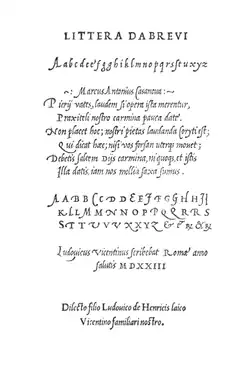 LITTERA DABREVI
Aabcdeefgghiklmnopqrsstuxyz
~: Marcus Antonius Casanova :~
Pierij vates, laudem si opera ista merentur,
Praxiteli nostro carmina pauca date.
Non placet hoc; nostri pietas laudanda Coryti est;
Qui dicat haec; nisi vos forsan uterq; movet;
Debetis saltem Dijs carmina, ni quoq;, et istis
Illa datis. iam nos mollia saxa sumus.
AABBCCDDEEFFGGHHJI
KLLMMNNOPPQRRS
STTUVVXXYZ & & &
Ludovicus Vicentinus scribebat Romae anno
salutis MDXXIII
Dilecto filio Ludouico de Henricis laico
Vicentino familiari nostro.